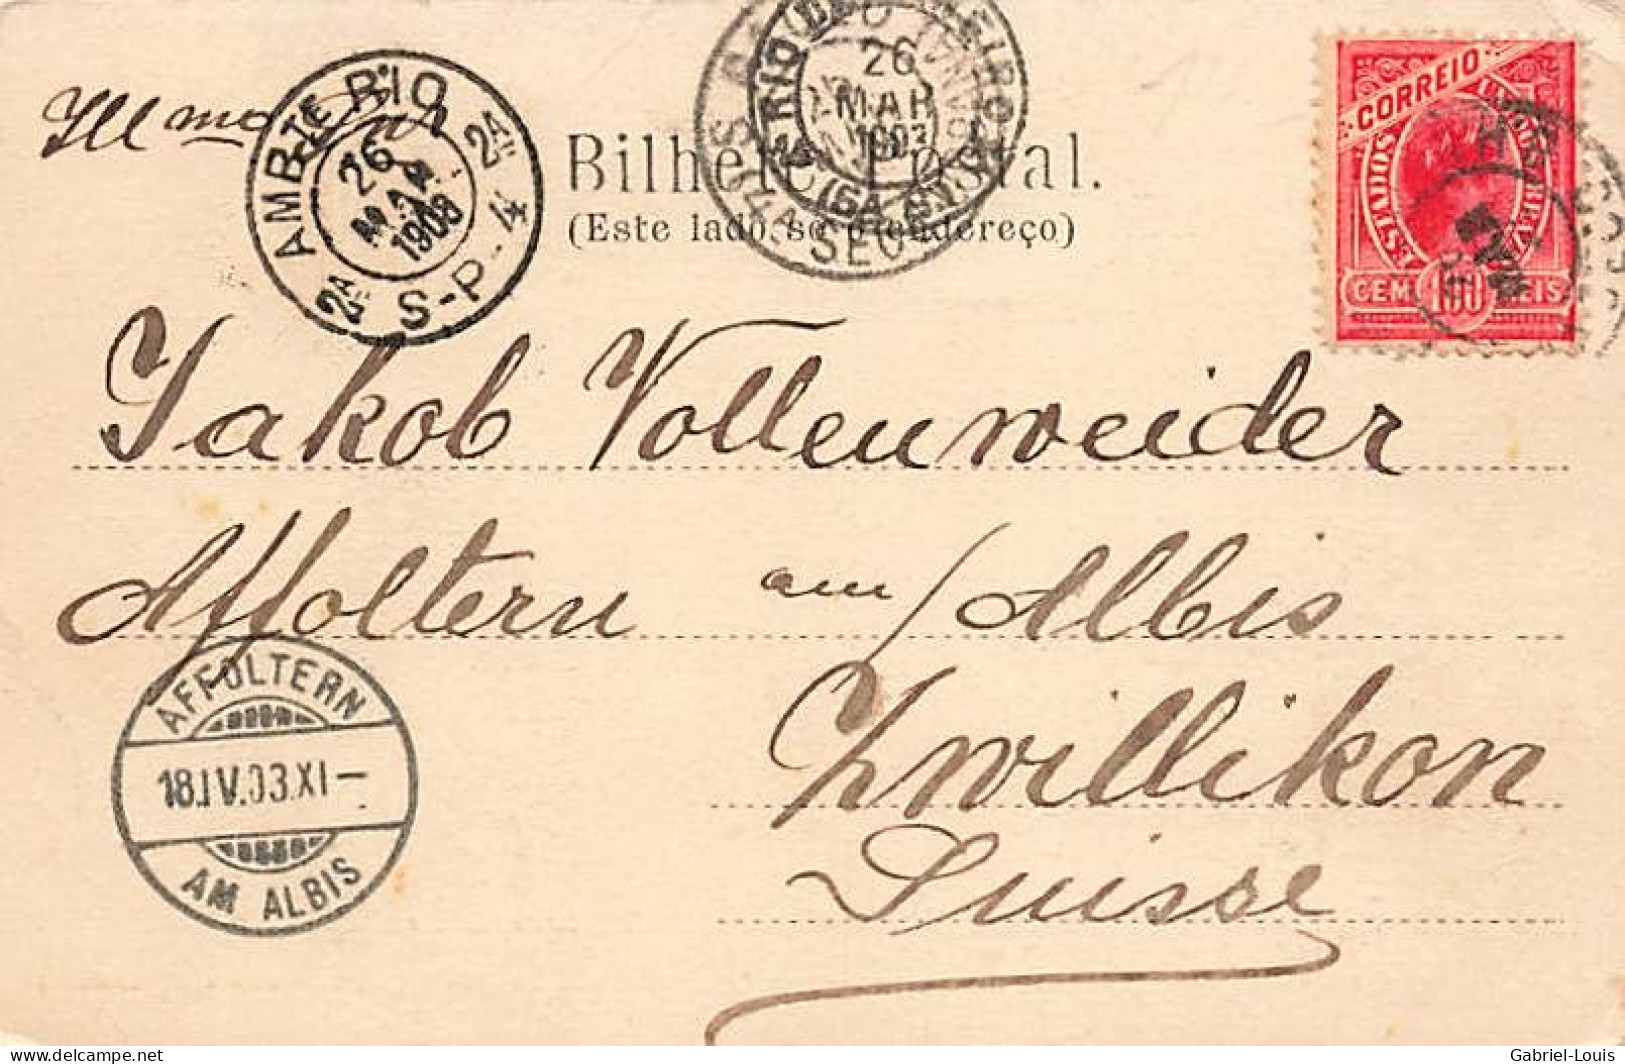 Illmo Snr
AMB. RIO 2A
26
MAR
1903
S-P-4
2A
RIO DE JANEIRO
26
MAR
1903
(6A SEC
Bilhete Postal.
(Este lado só o endereço)
CORREIO
ESTADOS
CEM 100 REIS
Jakob Vollenweider
Affoltern am Albis
Zwillikon
Suisse
AFFOLTERN
18.IV.03.XI—
AM ALBIS
delcampe.net
Gabriel-Louis